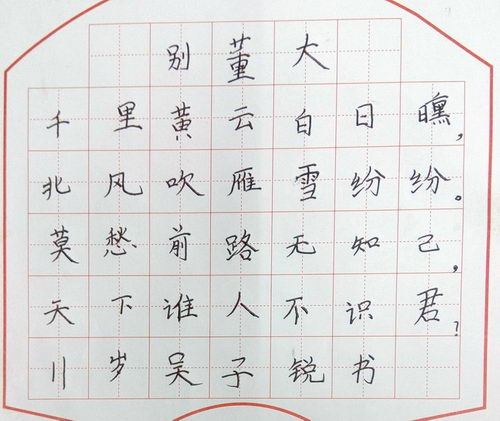 别董大
千里黄云白日曛，
北风吹雁雪纷纷。
莫愁前路无知己，
天下谁人不识君？
11岁吴子锐书